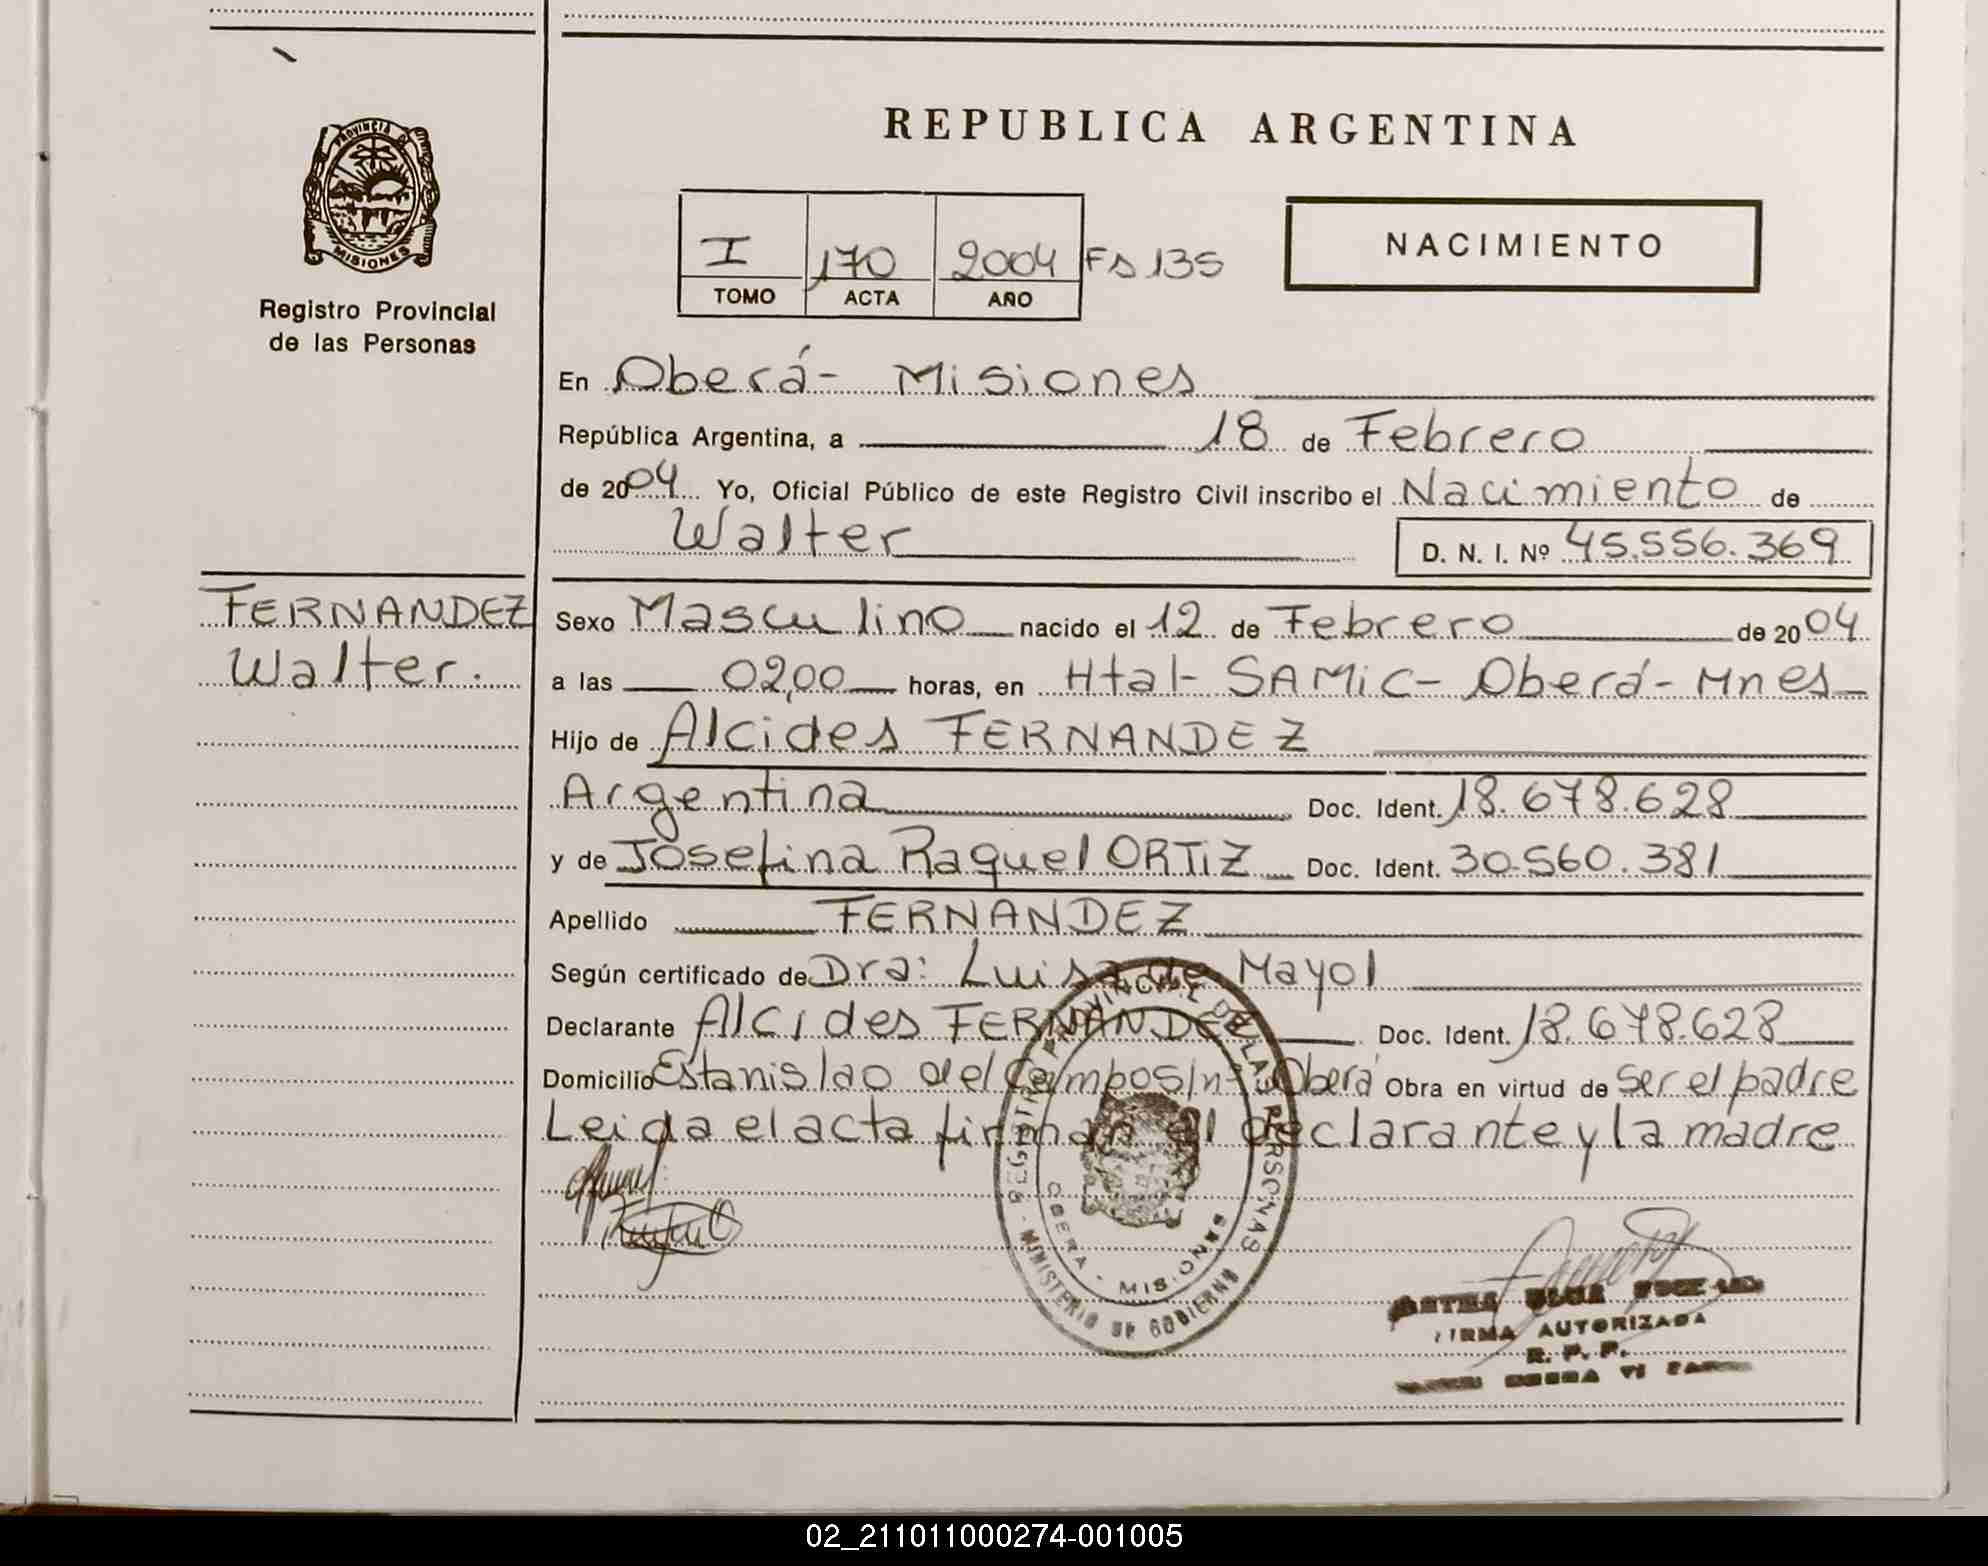 PROVINCIA DE
MISIONES
Registro Provincial
de las Personas
REPUBLICA ARGENTINA
I 170 2004 Fs 135
TOMO ACTA AÑO
NACIMIENTO
En Oberá- Misiones
República Argentina, a 18 de Febrero
de 2004 Yo, Oficial Público de este Registro Civil inscribo el Nacimiento de
Walter D. N. I. Nº 45.556.369
FERNANDEZ
Walter.
Sexo Masculino nacido el 12 de Febrero de 2004
a las 02,00 horas, en Htal- SAMIC- Oberá- Mnes
Hijo de Alcides FERNANDEZ
Argentina Doc. Ident. 18.678.628
y de Josefina Raquel ORTIZ Doc. Ident. 30.560.381
Apellido FERNANDEZ
Según certificado de Dra: Luisa de Mayol
Declarante Alcides FERNANDEZ Doc. Ident. 18.678.628
Domicilio Estanislao del Campo s/nº Oberá Obra en virtud de ser el padre
Leida el acta firman el declarante y la madre
REGISTRO PROVINCIAL DE LAS PERSONAS
OBERA - MISIONES
MINISTERIO DE GOBIERNO
FIRMA AUTORIZADA
R. P. P.
02_211011000274-001005